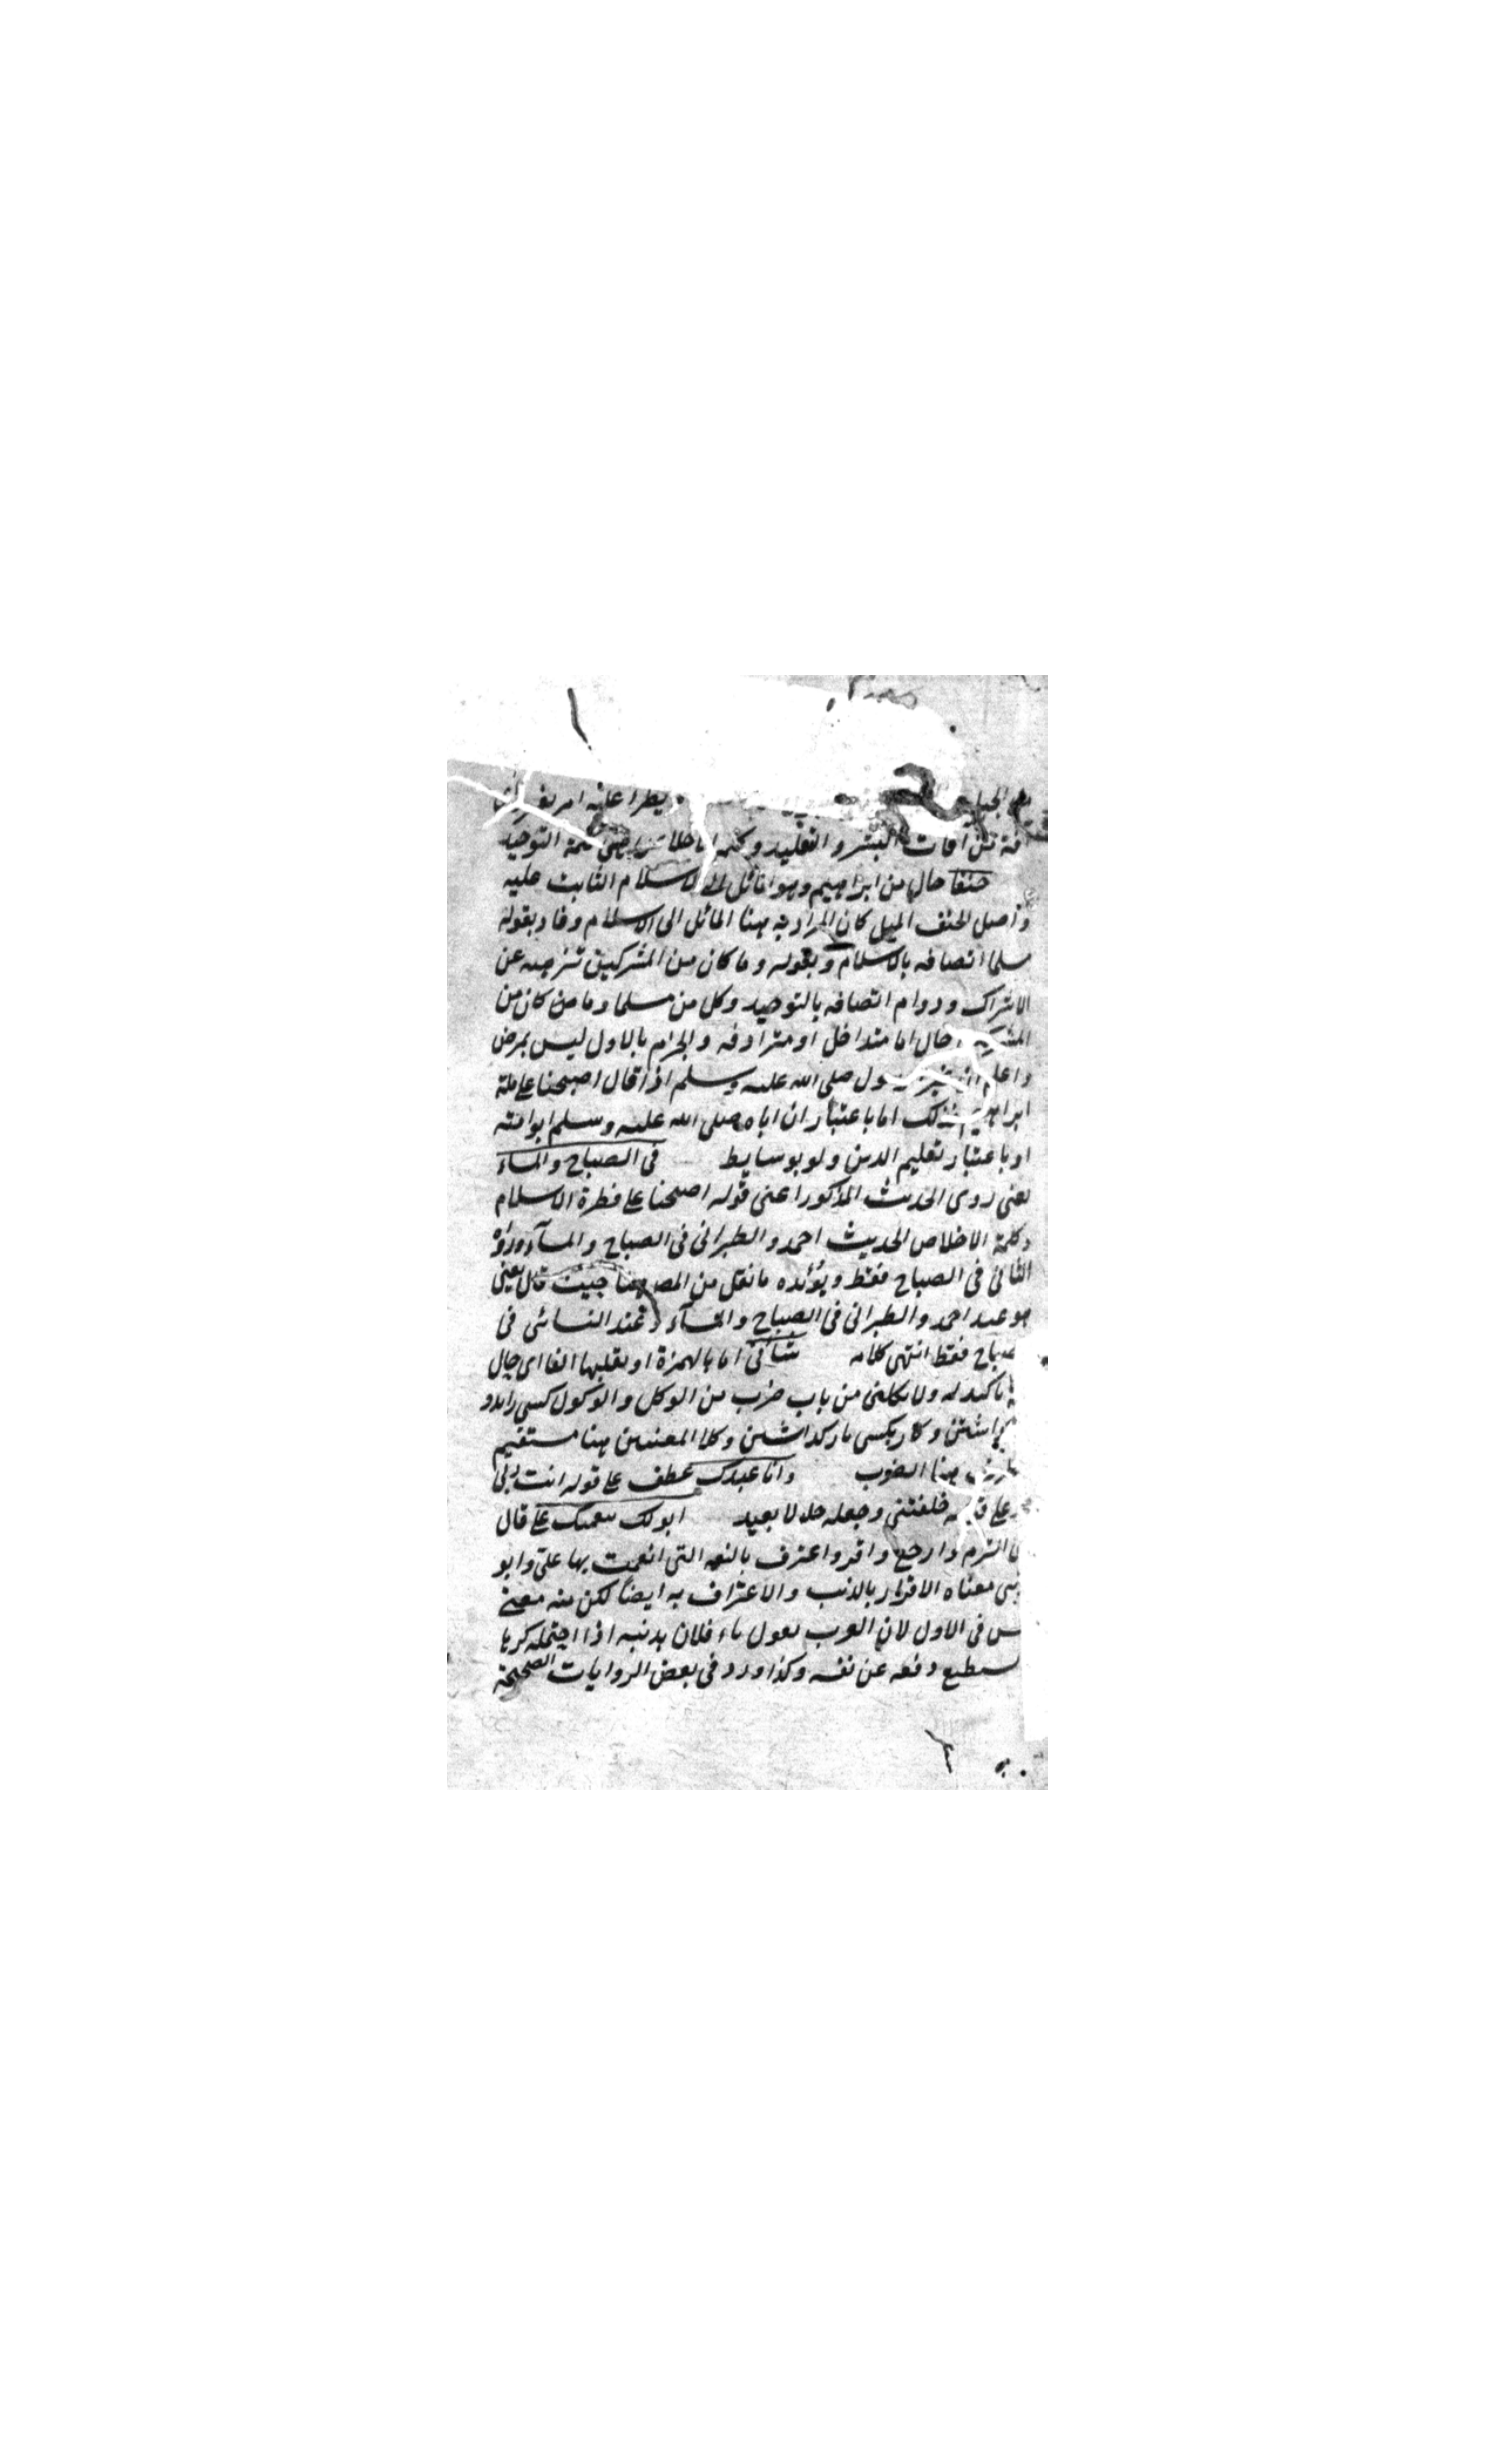 يطرا عليه امر
افة من افات البشر والتقليد وكلمة الاخلاص هي كلمة التوحيد
حنيفا حال من ابراهيم وهو المائل الى الاسلام الثابت عليه
واصل الحنف الميل كان المراد به ههنا المائل الى الاسلام وفاد بقوله
مسلما اتصافه بالاسلام وبقوله وما كان من المشركين تنزيهه عن
الاشراك ودوام اتصافه بالتوحيد وكل من مسلما وما من كان من
حال اما متداخل او مترادفه والجزم بالاول ليس بمرض
صلى الله عليه وسلم اذا قال اصبحنا على ملة
اما باعتبار ان اباه صلى الله عليه وسلم ابو امته
او باعتبار تعليم الدين ولو بوسايط في الصباح والمساء
يعني روى الحديث المذكور اعني قوله اصبحنا على فطرة الاسلام
وكلمة الاخلاص الحديث احمد والطبراني في الصباح والمسآء ورواه
الثاني في الصباح فقط ويؤيده ما نقل من المص ههنا حيث قال يعني
هو عند احمد والطبراني في الصباح والمسآء وعند النسائي في
الصباح فقط انتهى كلامه شاني اما بالهمزة او بقلبها الفا اي حال
تاكيد له ولا تكلني من باب ضرب من الوكل والوكول كسى را بدو
وكار بكسى باز كداشتن وكلا المعنيين ههنا مستقيم
ههنا وانا عبدك عطف على قوله انت ربي
خلقتني وجعله حالا بعيد ابو لك بنعمتك على قال
التزم وارجع واقر واعترف بالنعمة التي انعمت بها علي وابو
معناه الاقرار بالذنب والاعتراف به ايضا لكن منه معنى
في الاول لان العرب تقول باء فلان بذنبه اذا احتمله كرها
يستطيع دفعه عن نفسه وكذا ورد في بعض الروايات الصحيحة